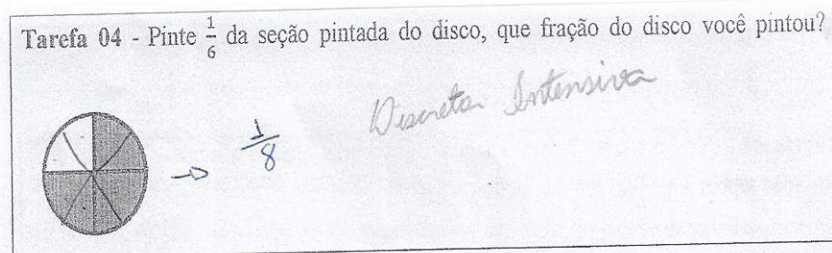 Tarefa 04 - Pinte 1/6 da seção pintada do disco, que fração do disco você pintou?
Discreta Intensiva
→ 1/8